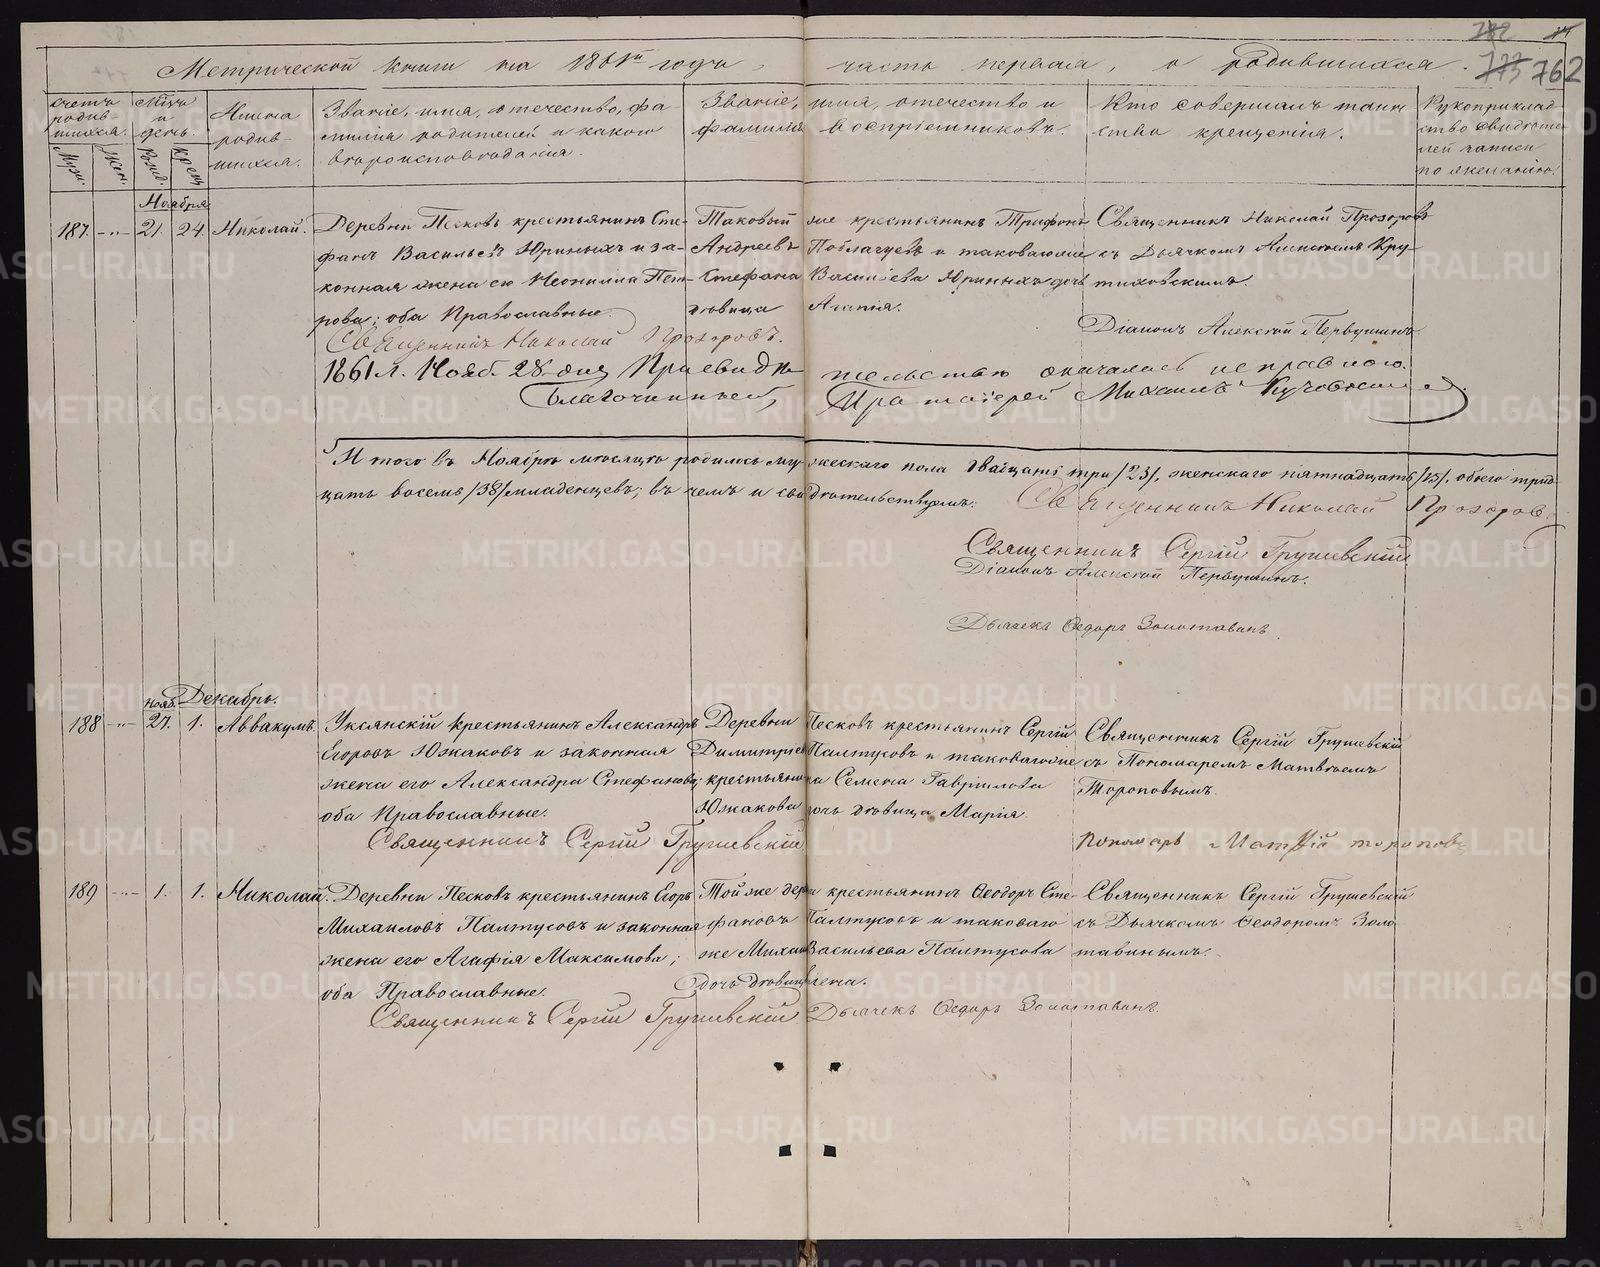 782
773 762
Метрической книги на 1861й годъ, часть первая, о родившихся.
Счетъ родив-шихся.
Муж. Жен.
Мѣсяцъ и день.
Рожд. Крещ.
Имена родив-шихся.
Званіе, имя, отечество, фамилія родителей и какого вѣроисповѣданія.
Званіе, имя, отечество и фамилія воспріемниковъ.
Кто совершалъ таинство крещенія.
Рукоприкладство свидѣтелей записи по желанію.
Ноября
187. -"- 21. 24. Николай.
Деревни Песковъ крестьянинъ Сте-
фанъ Васильевъ Юриныхъ и за-
конная жена его Неонилла Пет-
рова; оба Православные.
Таковый же крестьянинъ Трифонъ
Андреевъ Поблагуевъ и таковагоже
Стефана Василіева Юриныхъ дочь
дѣвица Агапія.
Священникъ Николай Прозоровъ
съ Дьячкомъ Алексѣемъ Кру-
тиховскимъ.
Діаконъ Алексѣй Первушинъ.
Священникъ Николай Прозоровъ.
1861 г. Нояб. 28 дня При свидѣтельствѣ оказалось исправною.
Благочинный, Протоіерей Михаилъ
Итого въ Ноябрѣ мѣсяцѣ родилось мужескаго пола двадцать три /23/, женскаго пятнадцать /15/, обоего трид-
цать восемь /38/ младенцевъ; въ чемъ и свидѣтельствуемъ: Священникъ Николай Прозоровъ
Священникъ Сергій Грушевскій
Діаконъ Алексѣй Первушинъ.
Дьячекъ Ѳедоръ Золотавинъ.
Декабрь.
Нояб.
188 -"- 27. 1. Аввакумъ.
Уксянскій крестьянинъ Александръ
Егоровъ Южаковъ и законная
жена его Александра Стефанова;
оба Православные.
Деревни Песковъ крестьянинъ Сергій
Димитріевъ Палтусовъ и таковагоже
крестьянина Семена Гавріилова
Южакова дочь дѣвица Марія.
Священникъ Сергій Грушевскій
съ Пономаремъ Матвѣемъ
Тороповымъ.
Священникъ Сергій Грушевскій
Пономарь Матвѣй Тороповъ
189 -"- 1. 1. Николай.
Деревни Песковъ крестьянинъ Егоръ
Михаиловъ Палтусовъ и законная
жена его Агафія Максимова;
оба Православные.
Той же дерни крестьянинъ Ѳеодоръ Сте-
фановъ Палтусовъ и таковаго
же Михаи Васильева Палтусова
дочь дѣвица
Священникъ Сергій Грушевскій
съ Дьячкомъ Ѳеодоромъ Золо-
тавинымъ.
Священникъ Сергій Грушевскій
Дьячекъ Ѳедоръ Золотавинъ.
METRIKI.GASO-URAL.RU